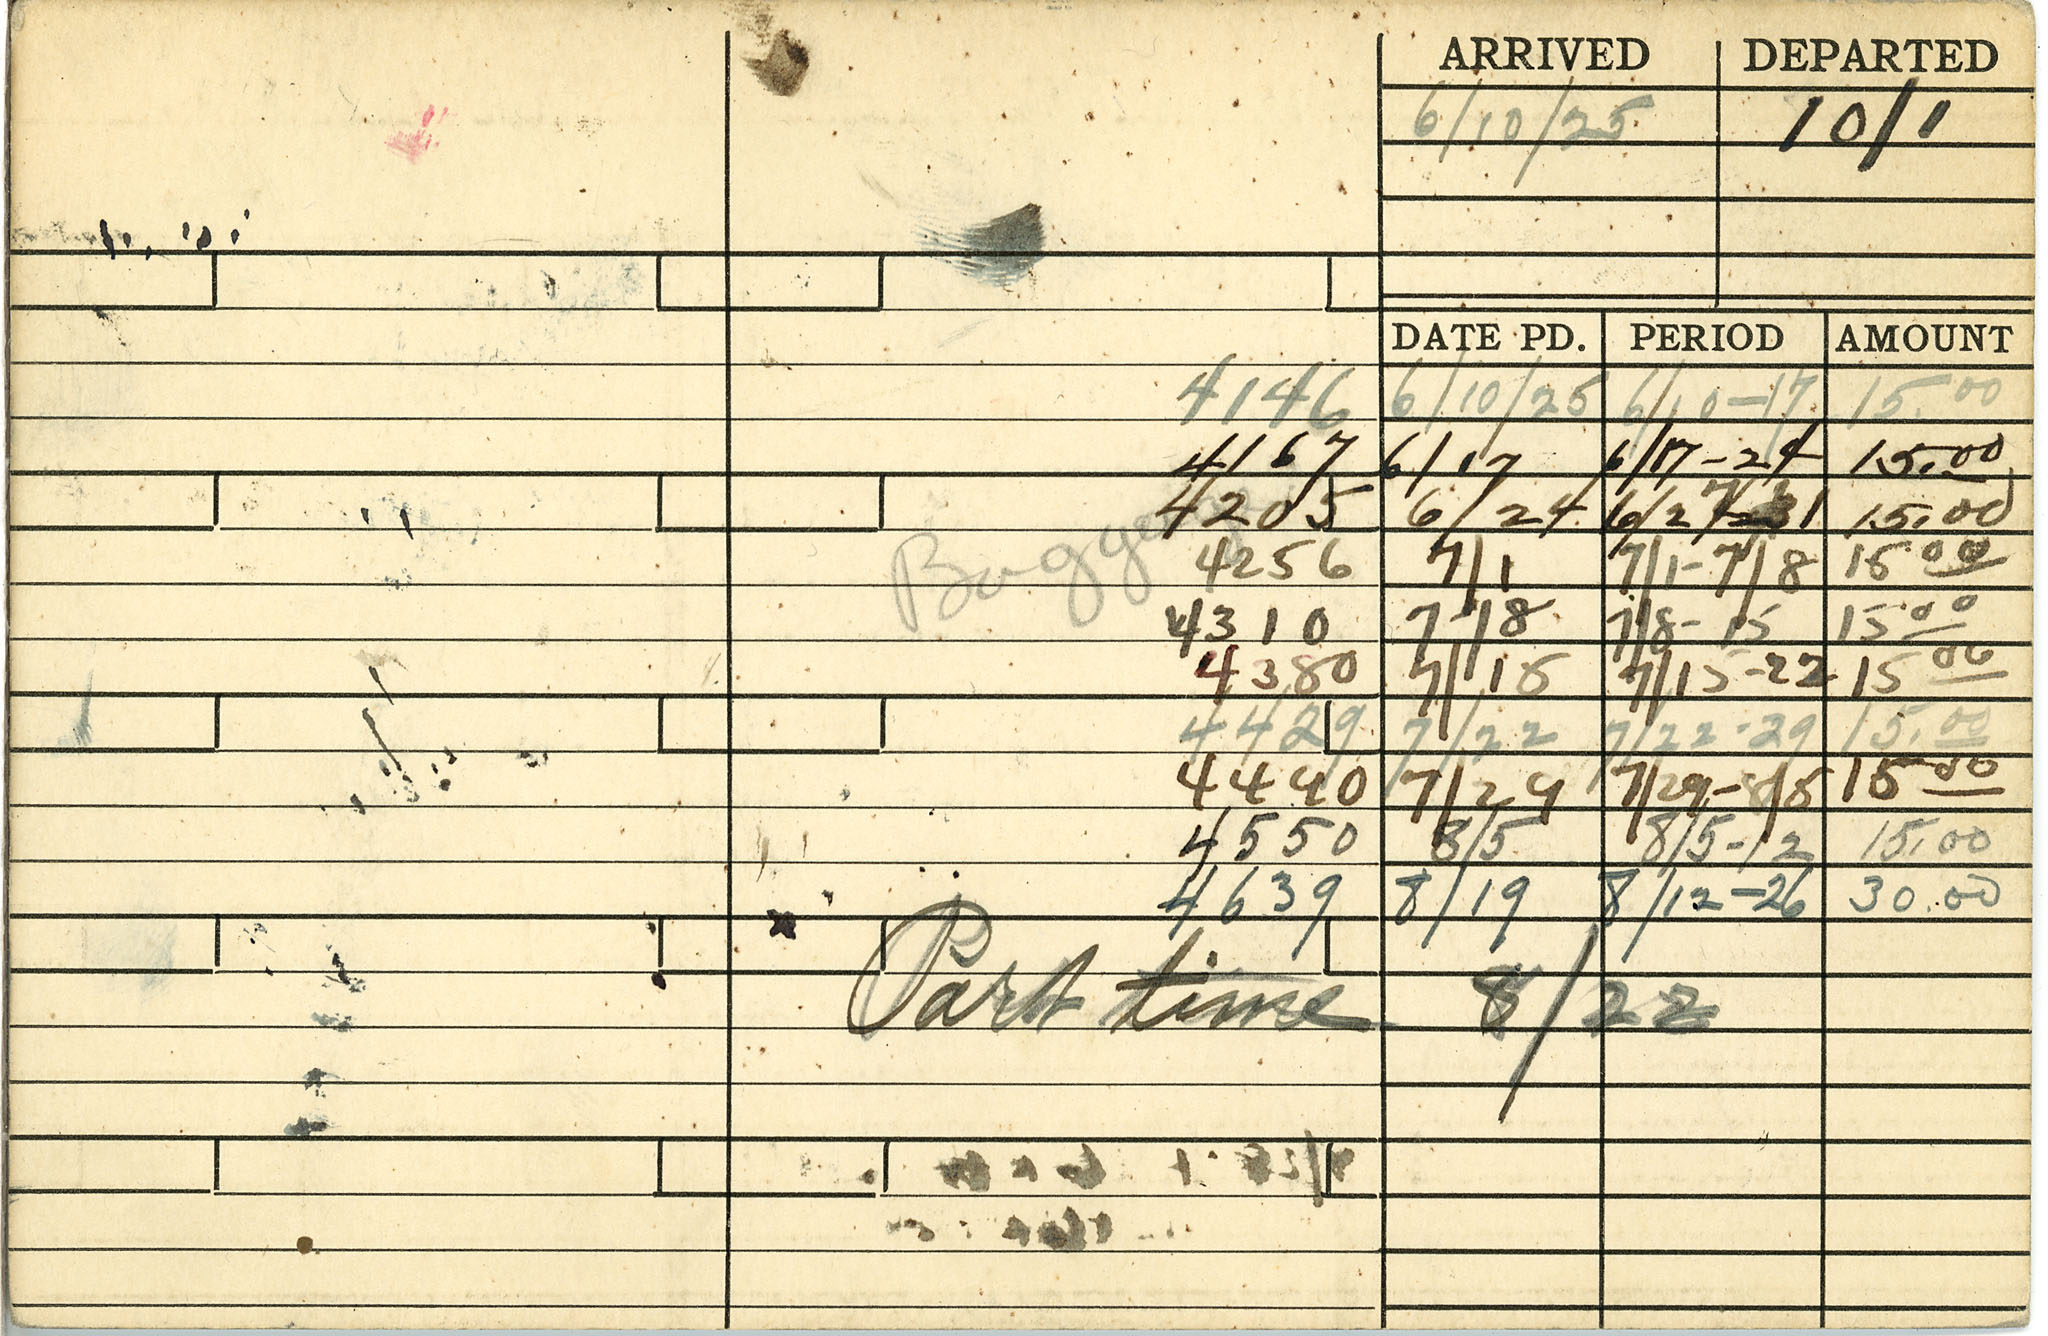 ARRIVED DEPARTED
6/10/25 10/1
DATE PD. PERIOD AMOUNT
4146 6/10/25 6/10-17 15.00
4167 6/17 6/17-24 15.00
4205 6/24 15.00
4256 7/1 7/1-7/8 15 00
4310 7/8 7/8-15 15 00
4380 7/15 7/15-22 15 00
4429 7/22 7/22-29 15.00
4490 7/29 7/29-8/5 15 00
4550 8/5 8/5-12 15.00
4639 8/19 8/12-26 30.00
Part time 8/22